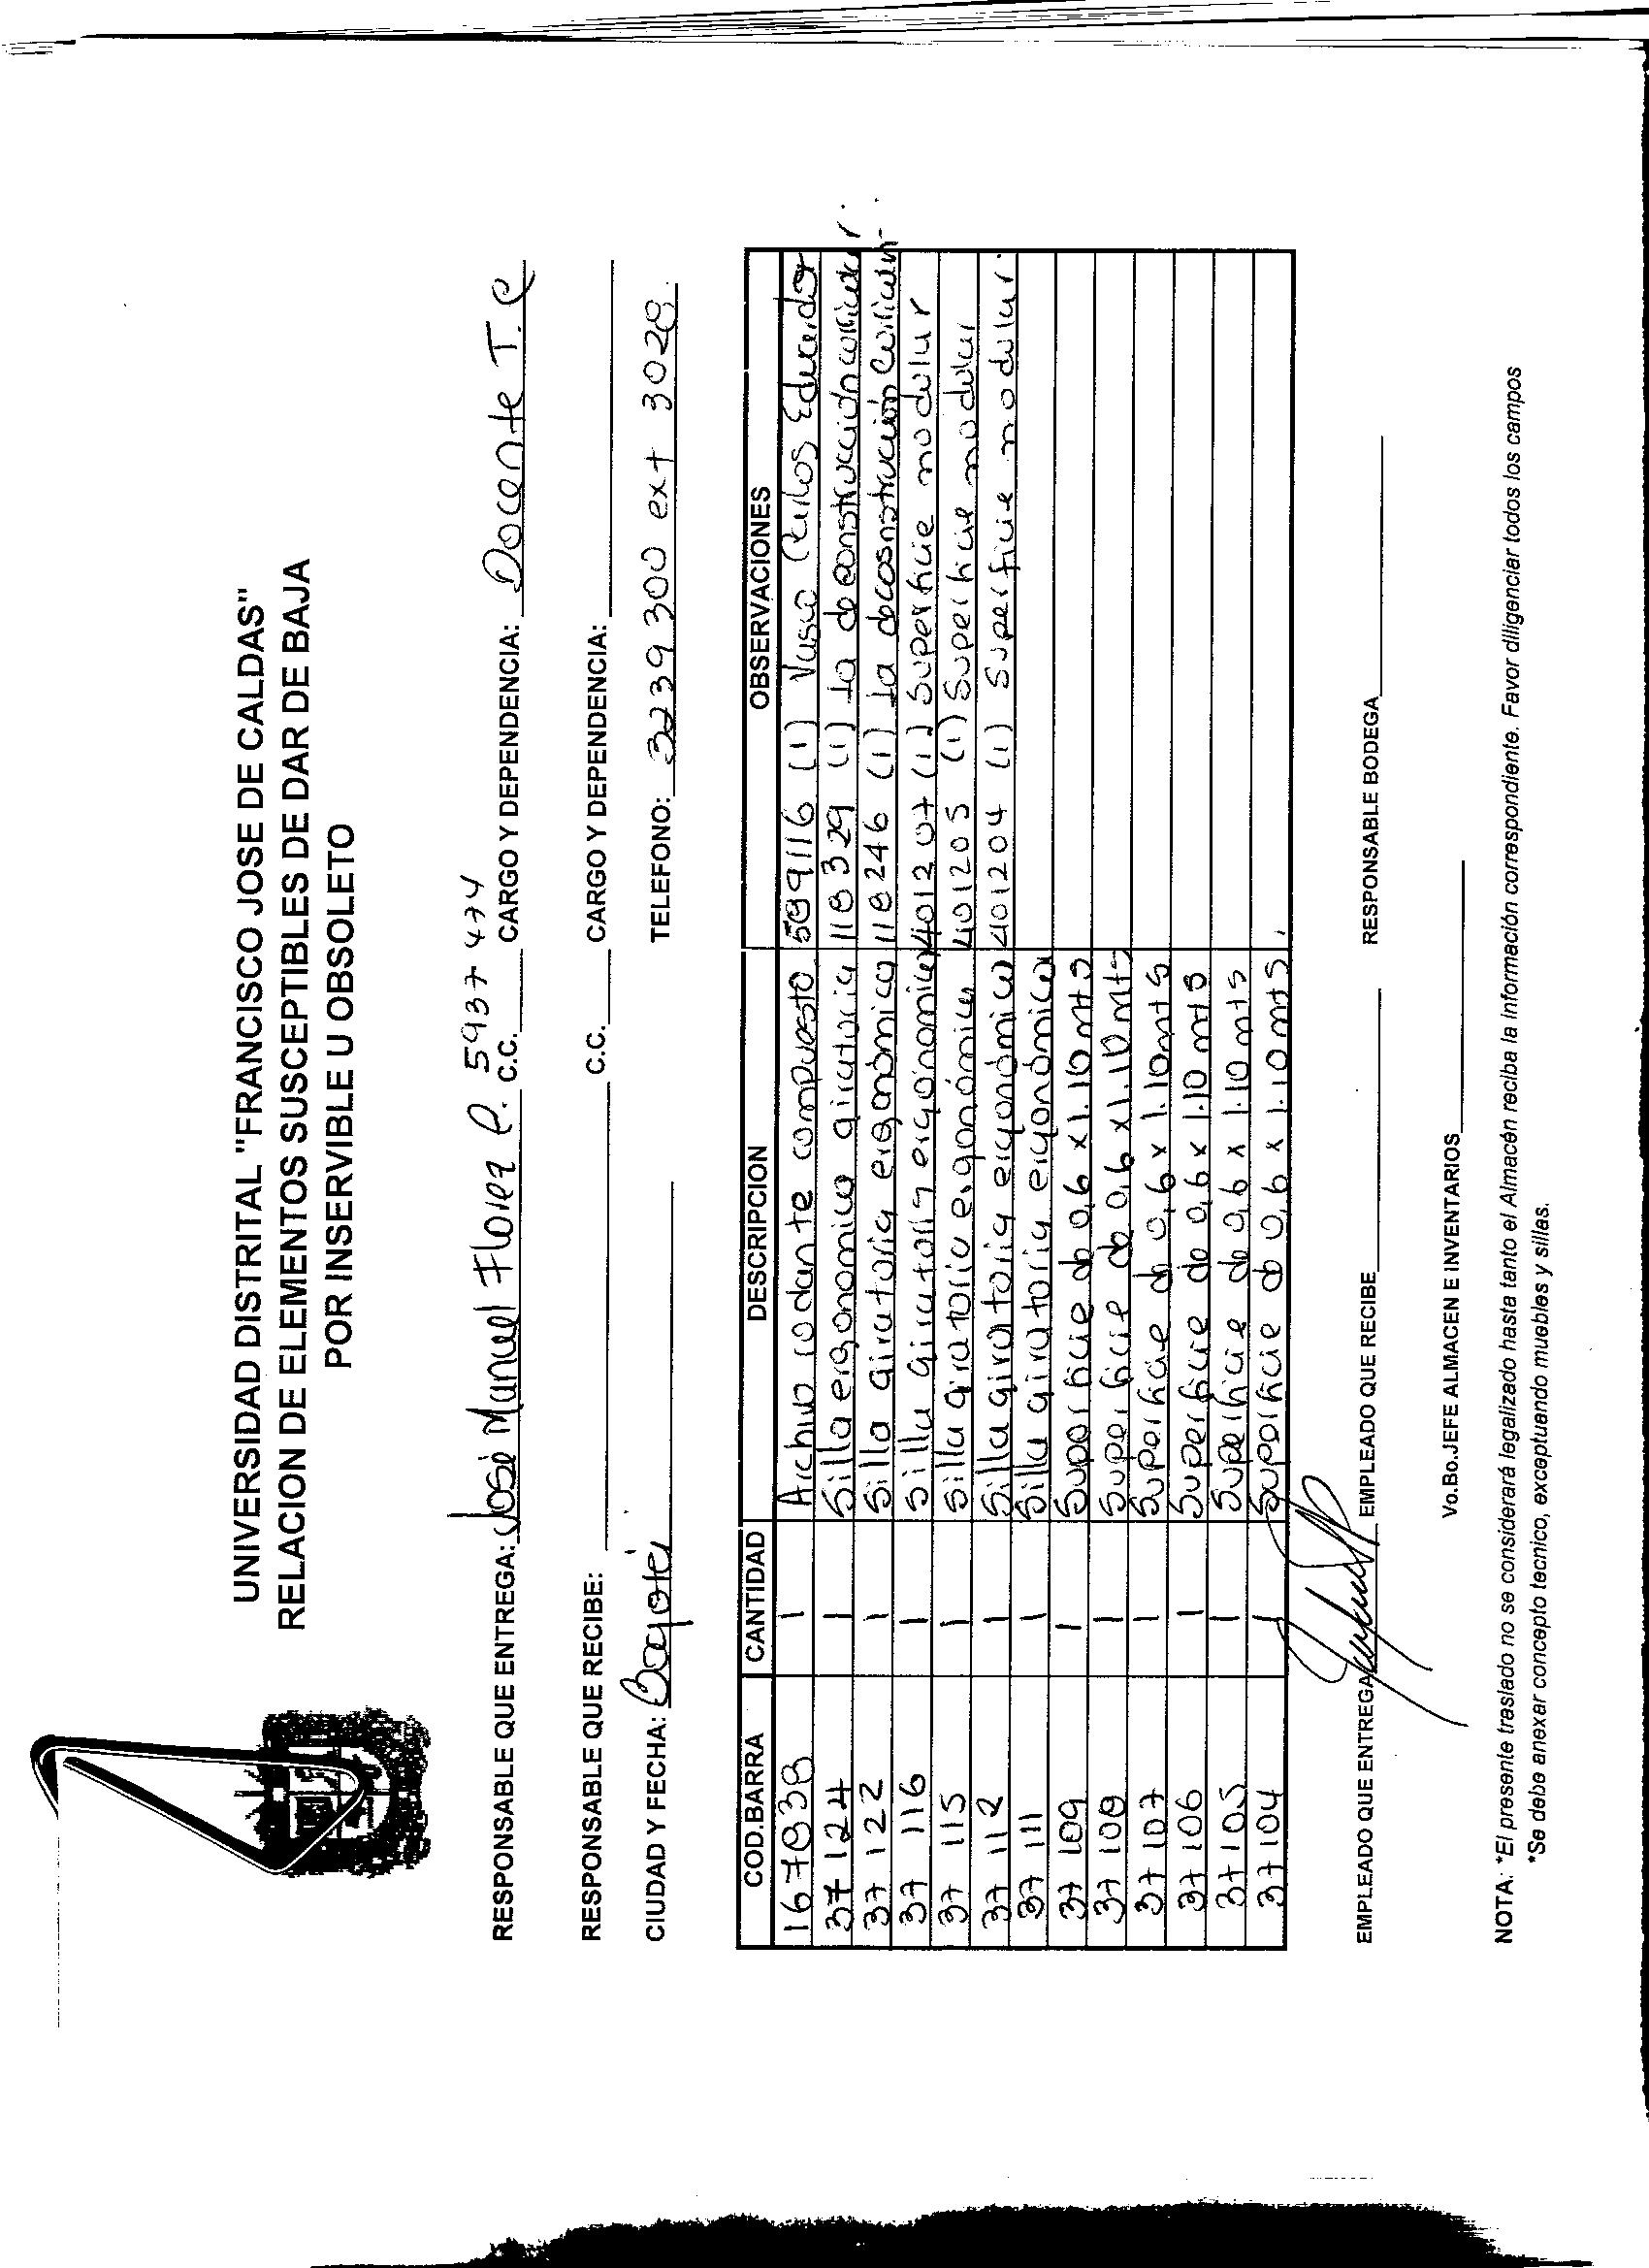 UNIVERSIDAD DISTRITAL "FRANCISCO JOSE DE CALDAS"
RELACION DE ELEMENTOS SUSCEPTIBLES DE DAR DE BAJA
POR INSERVIBLE U OBSOLETO
RESPONSABLE QUE ENTREGA: José Manuel Florez P. C.C. 5937474 CARGO Y DEPENDENCIA: Docente T.C
RESPONSABLE QUE RECIBE: C.C. CARGO Y DEPENDENCIA:
CIUDAD Y FECHA: Bogotá TELEFONO: 3239300 ext 3028
COD.BARRA CANTIDAD DESCRIPCION OBSERVACIONES
167838 1 Archivo rodante compuesto 589116 (1) Vasco Carlos Eduardo
37124 1 Silla ergonomica giratoria 118329 (1) la deconstrucción curricular
37122 1 Silla giratoria ergonómica 118246 (1) la decosnstrucción
37116 1 Silla giratoria ergonomica 401207 (1) Superficie modular
37115 1 Silla giratoria ergonómica 401205 (1) Superficie modular
37112 1 Silla giratoria ergonómica 401204 (1) Superficie modular.
37111 1 Silla giratoria ergonómica
37109 1 Superficie de 0,6 x 1.10 mts
37108 1 Superficie de 0,6 x 1.10 mts
37107 1 Superficie de 0,6 x 1.10 mts
37106 1 Superficie de 0,6 x 1.10 mts
37105 1 Superficie de 0,6 x 1.10 mts
37104 1 Superficie de 0,6 x 1.10 mts.
EMPLEADO QUE ENTREGA EMPLEADO QUE RECIBE RESPONSABLE BODEGA
Vo.Bo.JEFE ALMACEN E INVENTARIOS
NOTA: *El presente traslado no se considerará legalizado hasta tanto el Almacén reciba la información correspondiente. Favor diligenciar todos los campos
*Se debe anexar concepto tecnico, exceptuando muebles y sillas.